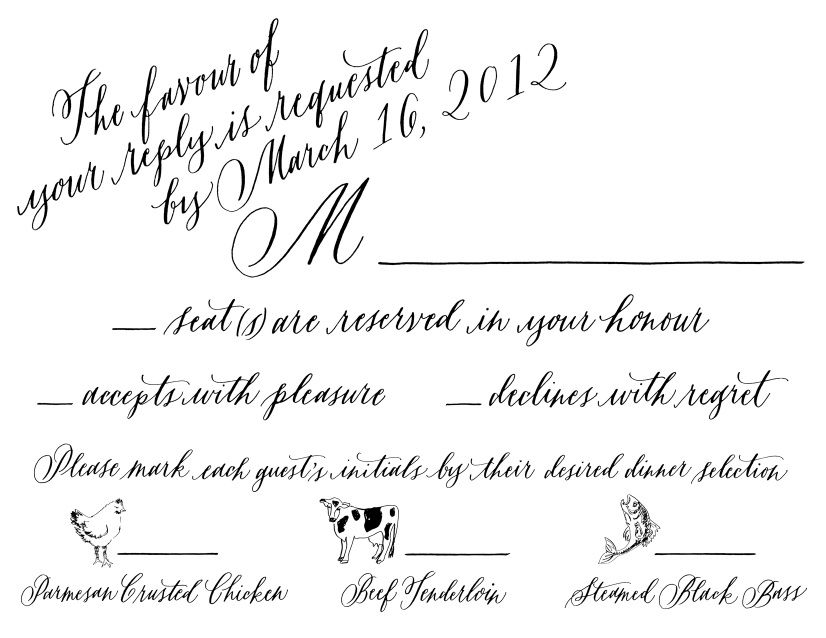 The favour of
your reply is requested
by March 16, 2012
M
seat(s) are reserved in your honour
accepts with pleasure declines with regret
Please mark each guest's initials by their desired dinner selection
Parmesan Crusted Chicken Beef Tenderloin Steamed Black Bass